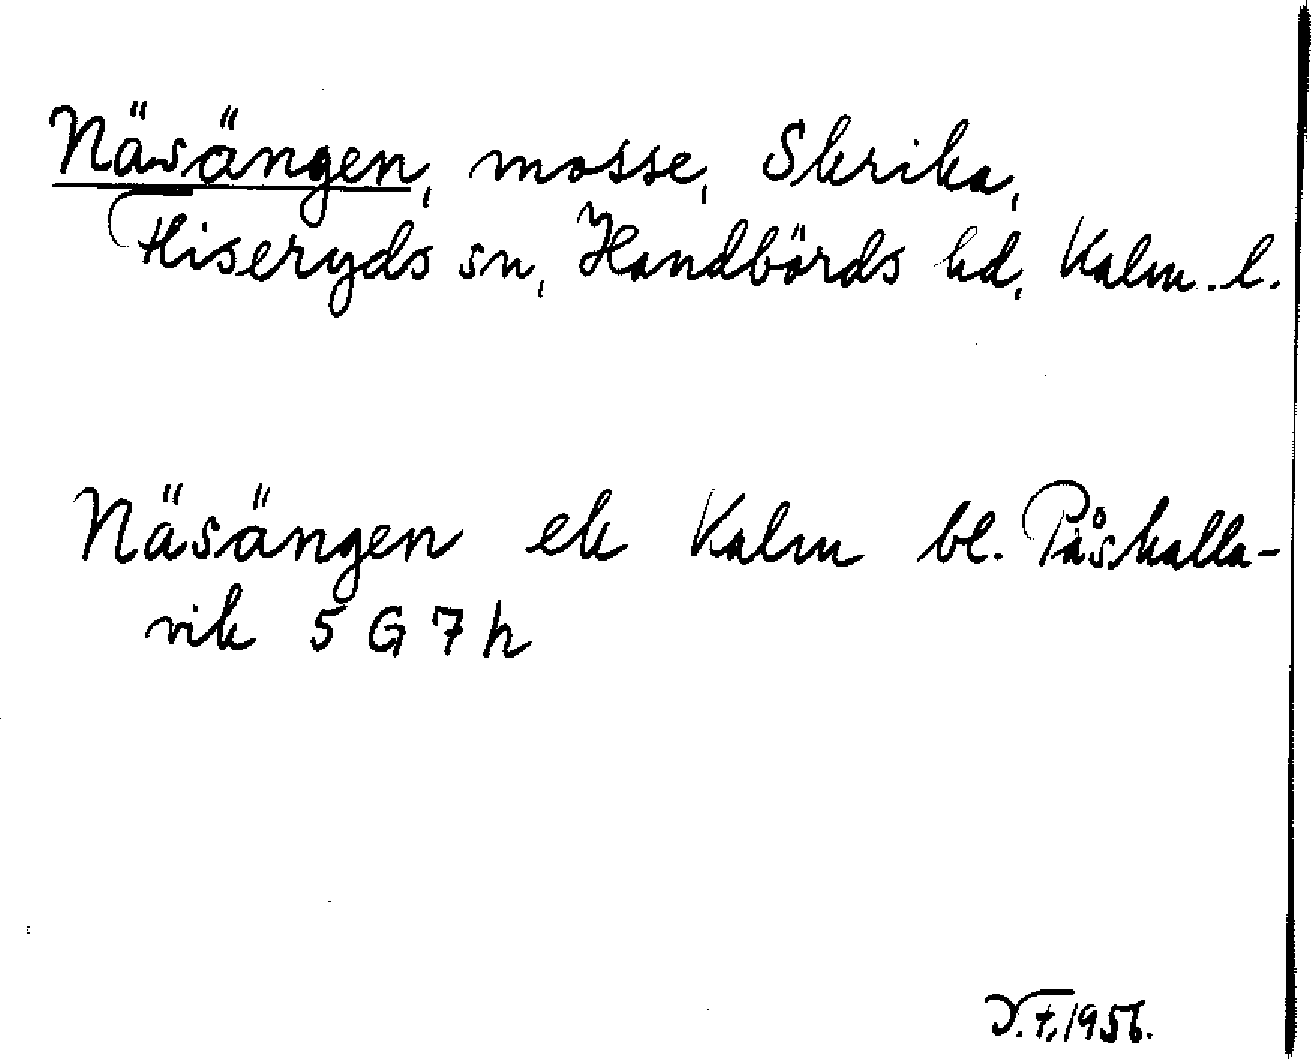 Näsängen, mosse, Skrika,
Fliseryds sn, Handbörds hd, Kalm. l.
Näsängen ek Kalm bl. Påskalla-
vik 5 G 7 h
1956.